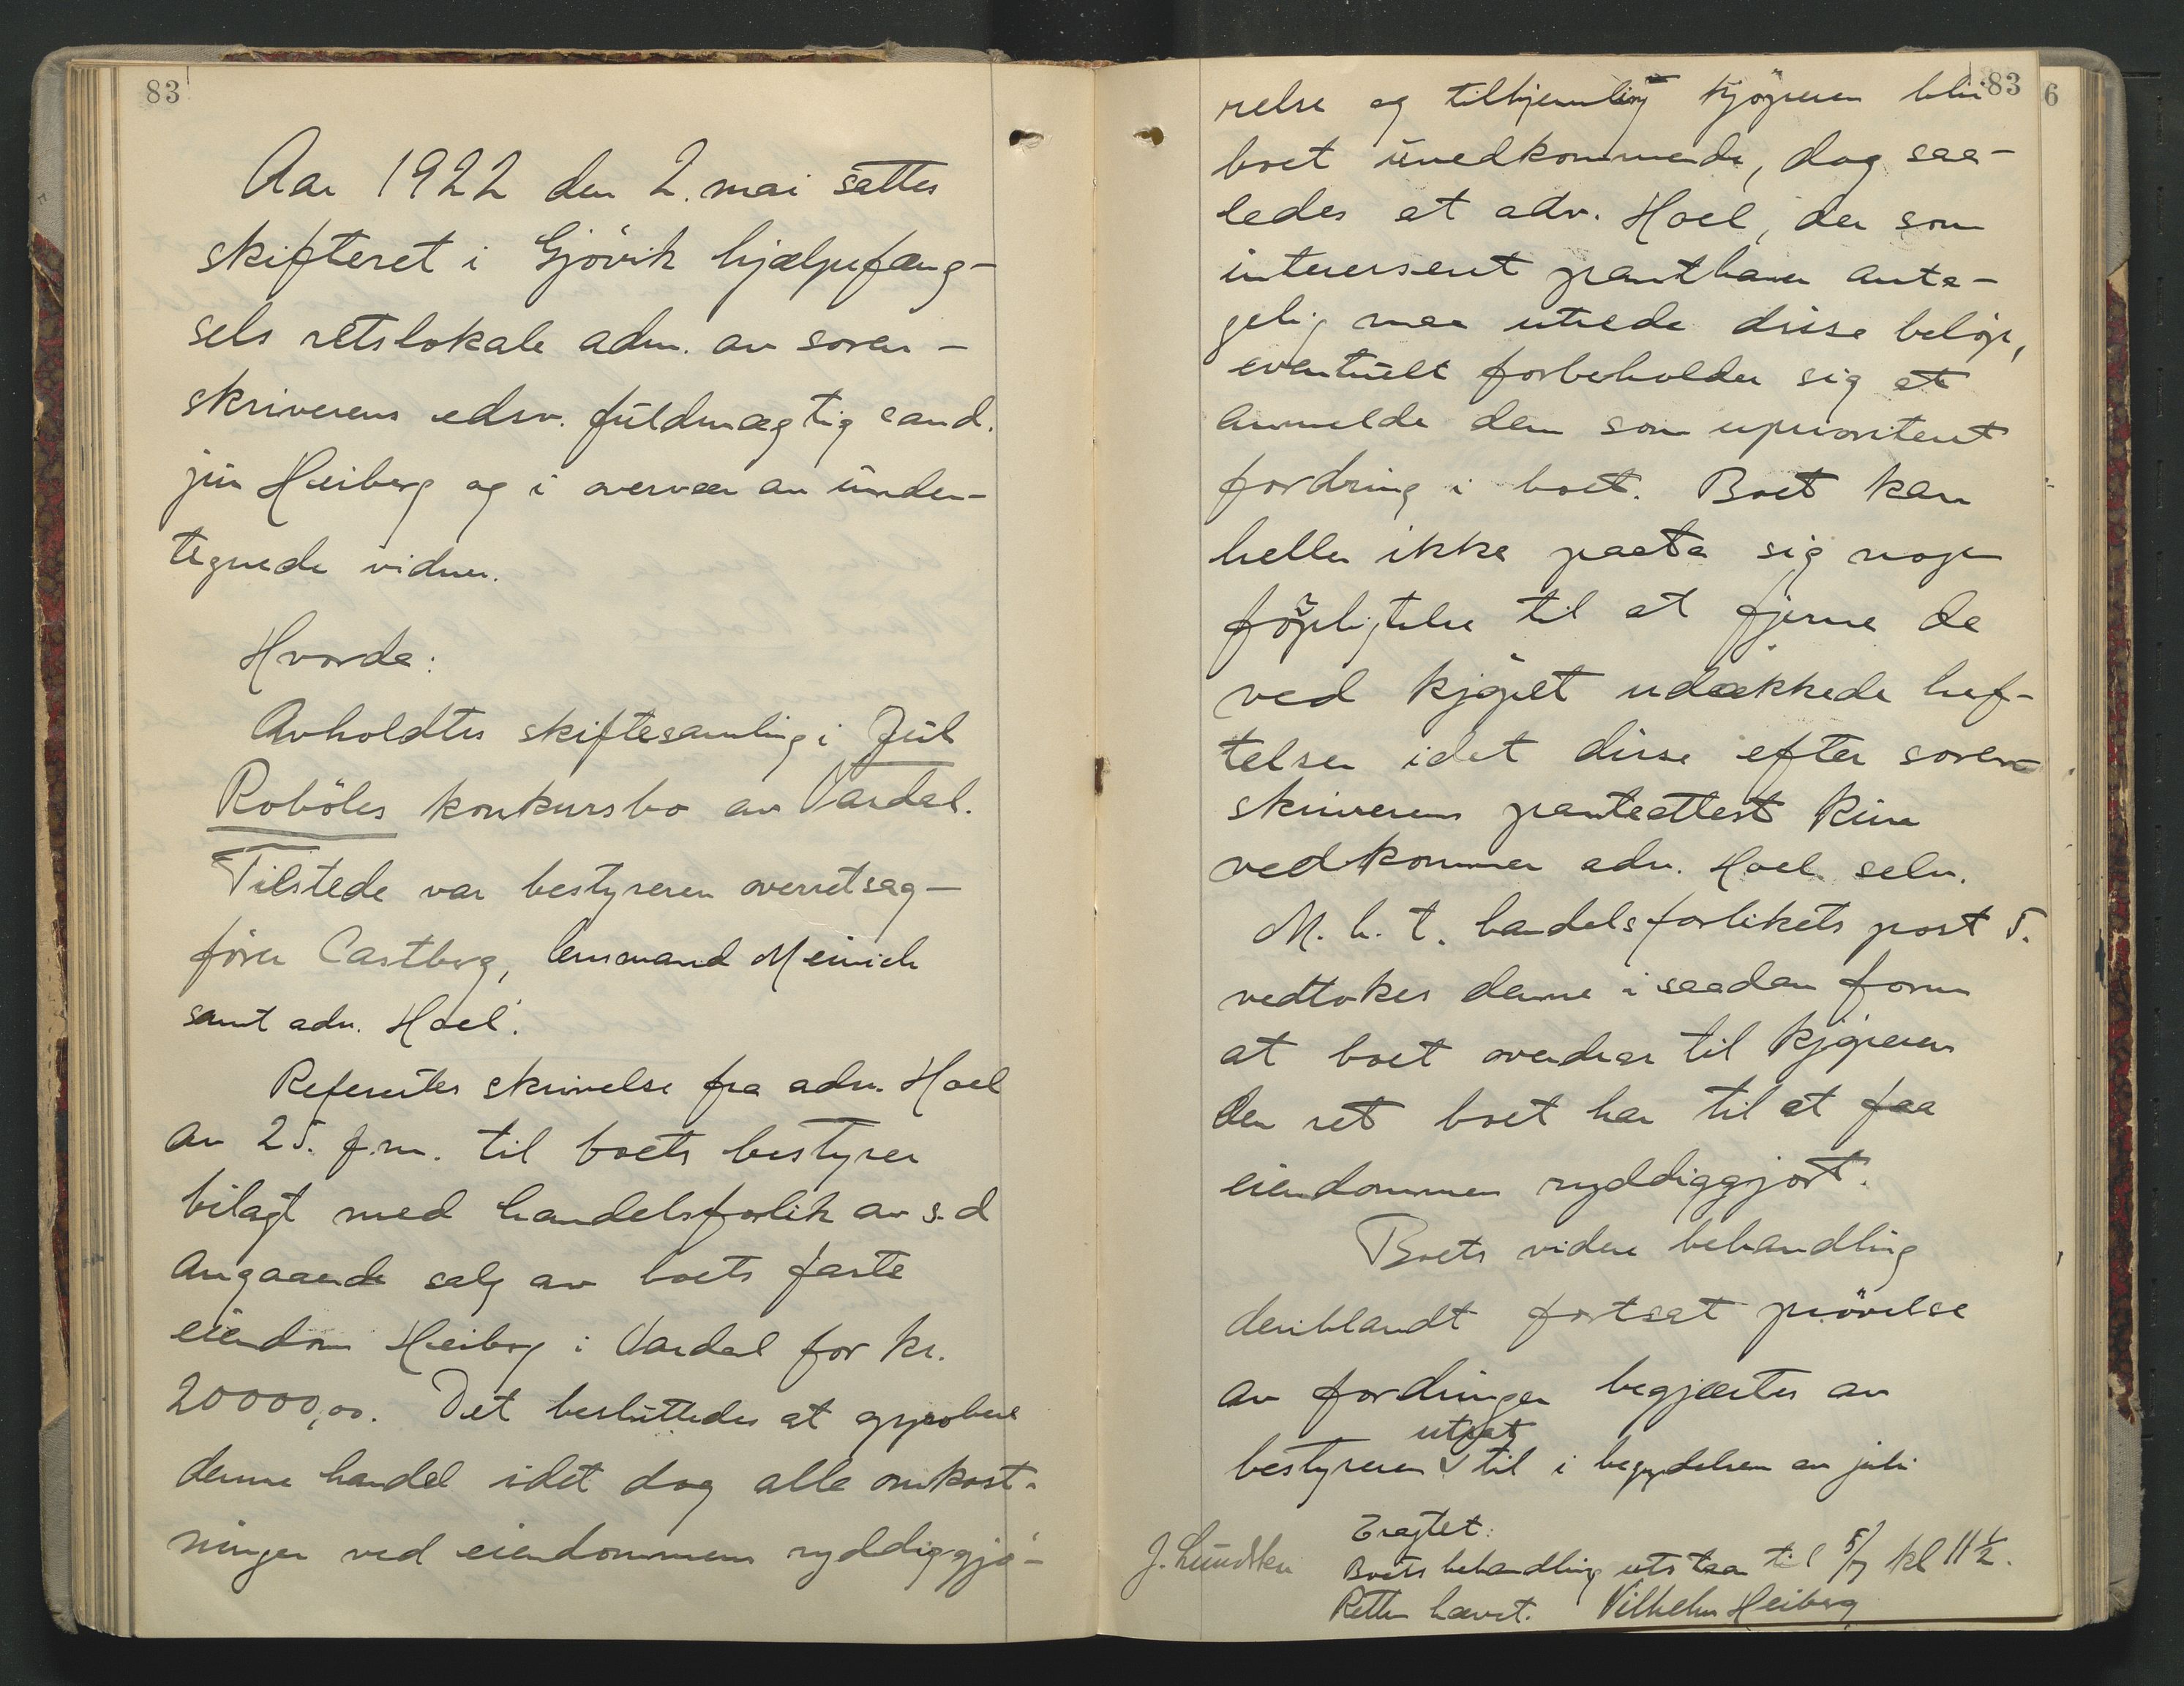 83
Aar 1922 den 2. mai sattes
skifteret i Gjövik hjælpefæng-
sels retslokale adm. av soren-
skriverens edsv. fuldmægtig cand.
jur Heiberg og i overvær av under-
tegnede vidner.
Hvorda:
Avholdtes skiftesamling i Jul
Roböles konkursbo av Vardal.
Tilstede var bestyreren overretsag-
förer Castberg, lensmand Meinich
samt adv. Hoel.
Refereites skrivelse fra adv. Hoel
av 25. f.m. til boets bestyrer
bilagt med handelsforlik av s.d
angaaende salg av boets faste
eiendom Heiberg i Vardal for kr.
20000,00. Det besluttedes at approbere
denne handel idet dog alle omkost-
ninger ved eiendommens ryddiggjö-
83
6
relse og tilhjemling kjöperen blir
boet uvedkommende, dog saa-
ledes at adv. Hoel, der som
interessert panthaver anta-
gelig maa utrede disse belöp,
eventuelt forbeholder sig at
anmelde dem som uprioritert
fordring i boet. Boet kan
heller ikke paata sig nogen
förpligtelse til at fjerne de
ved kjöpet udækkede hef-
telser idet disse efter soren-
skriverens panteattest kun
vedkommer adv. Hoel selv.
M. h. t. handelsforlikets post 5.
vedtokes denne i saadan form
at boet overdrar til kjöperen
den ret boet har til at faa
eiendommen ryddiggjort.
Boets videre behandling
deriblandt fortsat prövelse
av fordringer begjærtes av
utsat
bestyreren til i begyndelsen av juli
Eragtet:
Boets behandling utstaar til 5/7 kl 11 1/2.
J. Lundsten
Retten hævet. Vilhelm Heiberg